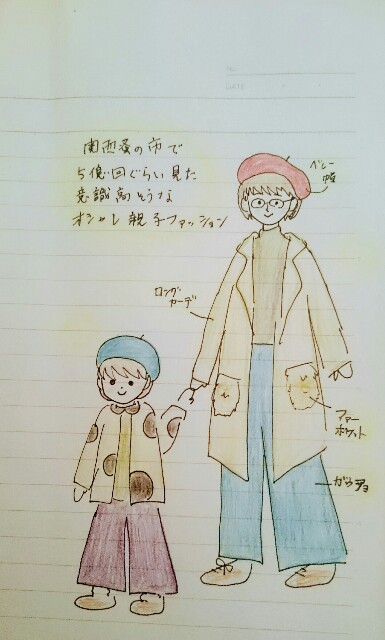 関西蚤の市で
5億回ぐらい見た
意識高そうな
オシャレ親子ファッション
ベレー帽
ロングカーデ
ファーポケット
ガウチョ